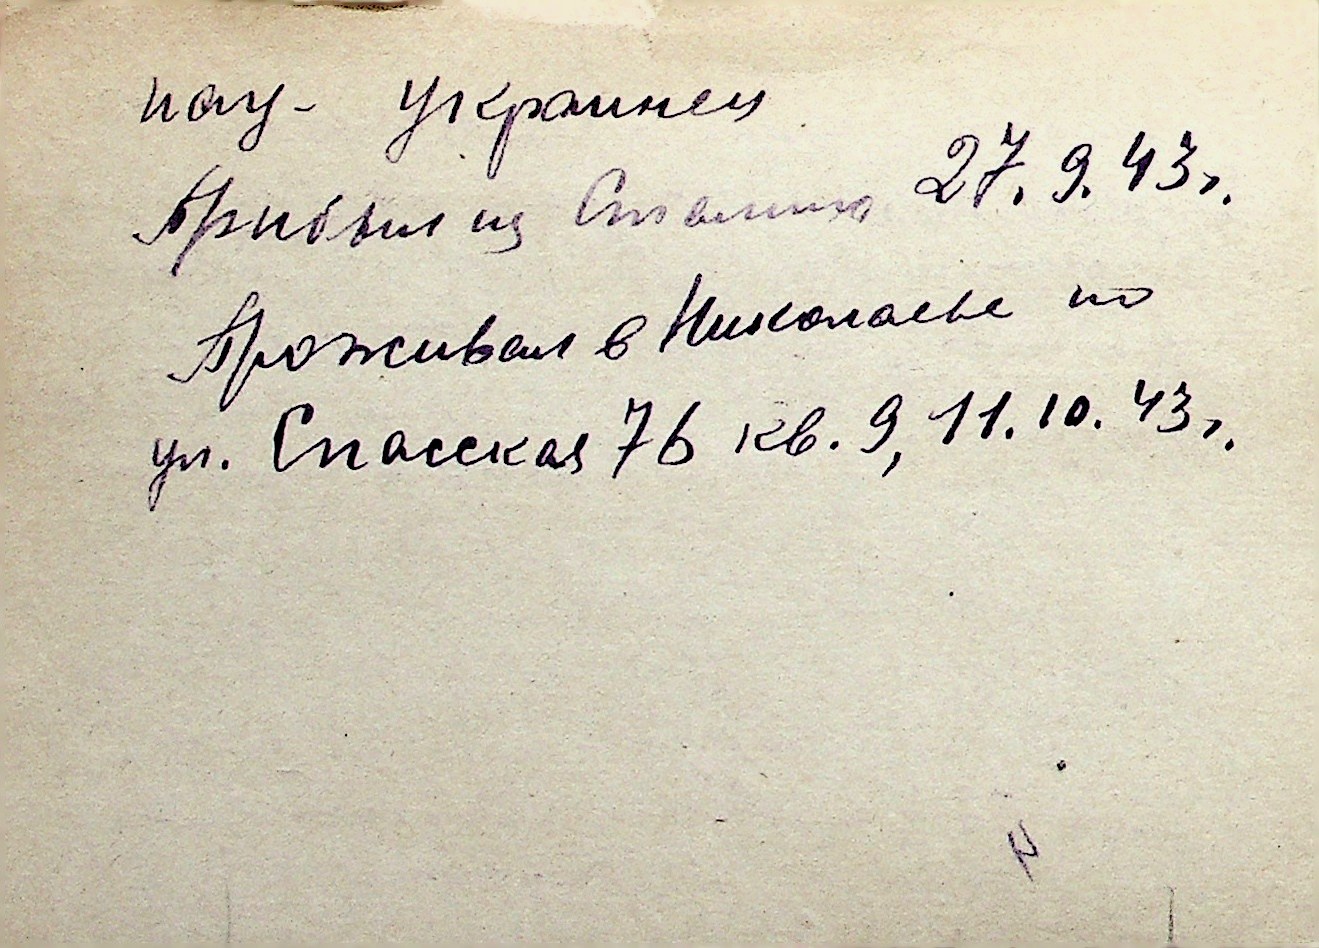 нац- украинец
Прибыл из Сталино 27.9.43г.
Проживал в Николаеве по
ул. Спасская 76 кв. 9, 11.10.43г.